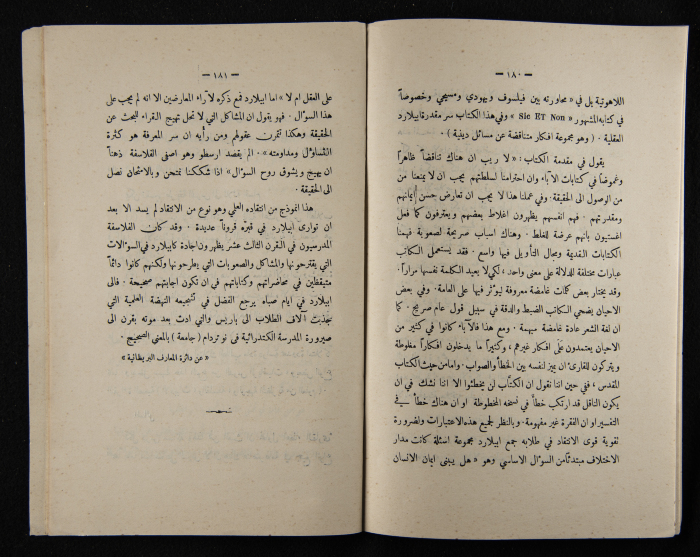 — ١٨٠ —
اللاهوتية بل في « محاورته بين فيلسوف ويهودي ومسيحي وخصوصاً
في كتابه المشهور « Sic ET Non » وفي هذا الكتاب سر مقدرة ابيلارد
العقلية . ( وهو مجموعة افكار متناقضة عن مسائل دينية ) .
يقول في مقدمة الكتاب : « لا ريب ان هناك تناقضاً ظاهراً
وغموضاً في كتابات الآباء وان احترامنا لسلطتهم يجب ان لا يمنعنا من
من الوصول الى الحقيقة . وفي عملنا هذا لا يجب ان تعارض حسن ايمانهم
ومقدرتهم . فهم انفسهم يظهرون اغلاط بعضهم ويعترفون كما فعل
اغسنيوس بانهم عرضة للغلط . وهناك اسباب صريحة لصعوبة فهمنا
الكتابات القديمة ومجال التأويل فيها واسع . فقد يستعمل الكاتب
عبارات مختلفة للدلالة على معنى واحد ، لكي لا يعيد الكلمة نفسها مراراً .
وقد يختار بعض كلمات غامضة معروفة ليؤثر فيها على العامة . وفي بعض
الاحيان يضحي الكاتب الضبط والدقة في سبيل قول عام صريح . كما
ان لغة الشعر عادة غامضة مبهمة . ومع هذا فالآباء كانوا في كثير من
الاحيان يعتمدون على افكار غيرهم ، وكثيراً ما يدخلون افكاراً مغلوطة
ويتركون للقارئ ان يميز لنفسه بين الخطأ والصواب . واما من حيث الكتاب
المقدس ، ففي حين اننا نقول ان الكتّاب لن يخطئوا الا اننا نشك في ان
يكون الناقل قد ارتكب خطأ في نسخه المخطوطة او ان هناك خطأ في
التفسير او ان الفقرة غير مفهومة . وبالنظر لجميع هذه الاعتبارات ولضرورة
تقوية قوى الانتقاد في طلابه جمع ابيلارد مجموعة اسئلة كانت مدار
الاختلاف مبتدئاً من السؤال الاساسي وهو « هل يبنى ايمان الانسان
— ١٨١ —
على العقل ام لا » اما ابيلارد فمع ذكره لآراء المعارضين الا انه لم يجب على
هذا السؤال . فهو يقول ان المشاكل التي لا تحل تهيج القراء للبحث عن
الحقيقة وهكذا تمرن عقولهم ومن رأيه ان سر المعرفة هو كثرة
التساؤل ومداومته » . الم يقصد ارسطو وهو اصفى الفلاسفة ذهناً
ان يهيج ويشوق روح السؤال » اذا شككنا نمتحن وبالامتحان نصل
الى الحقيقة .
هذا انموذج من انتقاده العلمي وهو نوع من الانتقاد لم يسد الا بعد
ان توارى ابيلارد في قبره قروناً عديدة . وقد كان الفلاسفة
المدرسيون في القرن الثالث عشر يظهرون اجادة كابيلارد في السؤالات
التي يقترحونها والمشاكل والصعوبات التي يطرحونها ولكنهم كانوا دائماً
متيقظين في محاضراتهم وكتاباتهم في ان تكون اجابتهم صحيحة . فالى
ابيلارد في ايام صباه يرجع الفضل في تشجيعه النهضة العلمية التي
جذبت آلاف الطلاب الى باريس والتي ادت بعد موته بقرن الى
صيرورة المدرسة الكتدرائية في نوتردام ( جامعة ) بالمعنى الصحيح .
« عن دائرة المعارف البريطانية »